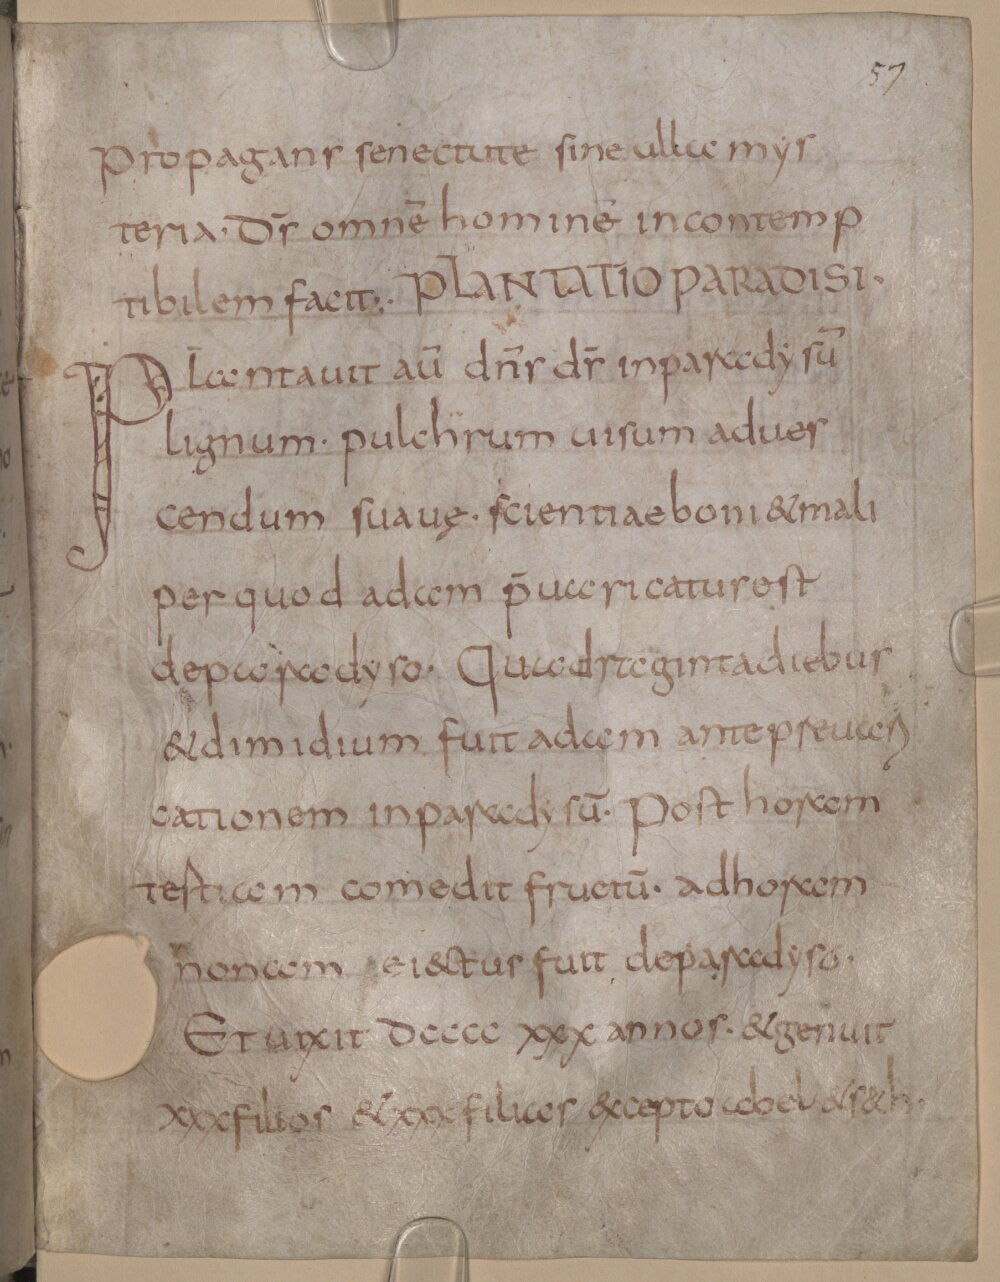 57
propagans senectute sine ulla mys
teria. dr̄s omnē hominē incontemp
tibilem facit. PLANTATIO PARADISI.
Plantauit aū dn̄s dr̄ inparadysū
lignum. pulchrum uisum adues
cendum suauę. scientiae boni & mali
per quod adam p̄uaricatus est
deparadyso. Quadraginta diebus
& dimidium fuit adam ante preuari
cationem inparadysū. Post horam
sesticam comedit fructū. ad horam
nonam eiectus fuit deparadyso.
Et uixit dcccc xxx annos. & genuit
xxx filios & xxx filias excepto abel & seth.